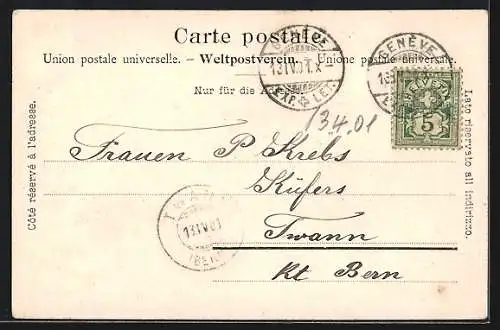 Carte postale.
Union postale universelle. – Weltpostverein. – Unione postale universale.
Nur für die Adresse.
GENÈVE
13.IV.01.X–
EXP. LET.
GENÈVE
HELVETIA
5
13.4.01
Côté réservé à l'adresse.
Lato riservato all indirizzo.
Frauen P Krebs
Küfers
Twann
Kt Bern
TWANN
13.IV.01
(BERN)